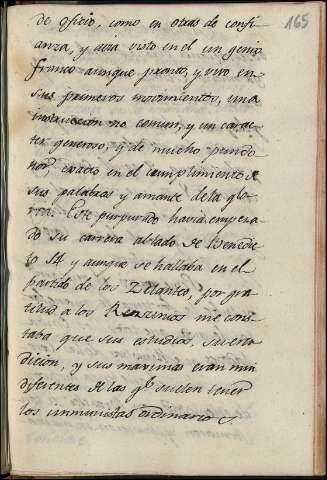 165
de oficio, como en otras de confi
anza, y avia visto en el un genio
franco aunque pronto, y vivo en
sus primeros movimientos, una
instruccion no comun, y un carac
ter generoso, y de mucho pundo
nor, exacto en el cumplimiento de
sus palabras y amante de la glo
ria. Este purpurado havia empeza
do su carrera al lado de Benedic
to 14 y aunque se hallaba en el
partido de los Zelantes, por gra
titud a los Rezzonicos me cons
taba que sus estudios, su eru
dicion, y sus maximas eran mui
diferentes de las q.e suelen tener
los ordinario